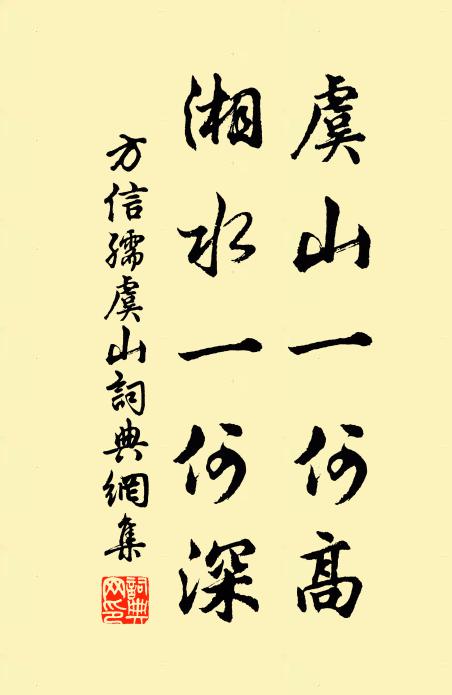 虞山一何高
湘水一何深
方信孺虞山詞典網集
詞典網印